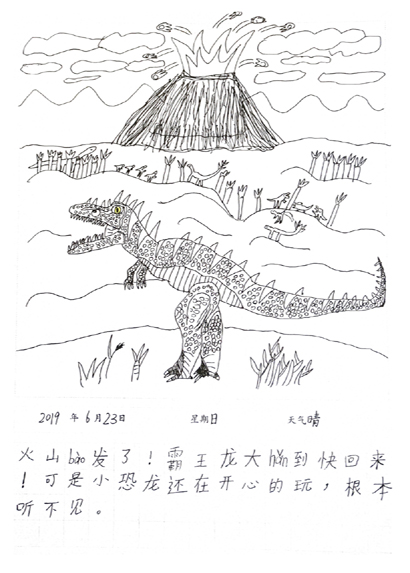 2019 年 6月23日 星期日 天气晴
火山bào发了！霸王龙大喊到快回来
！可是小恐龙还在开心的玩，根本
听不见。